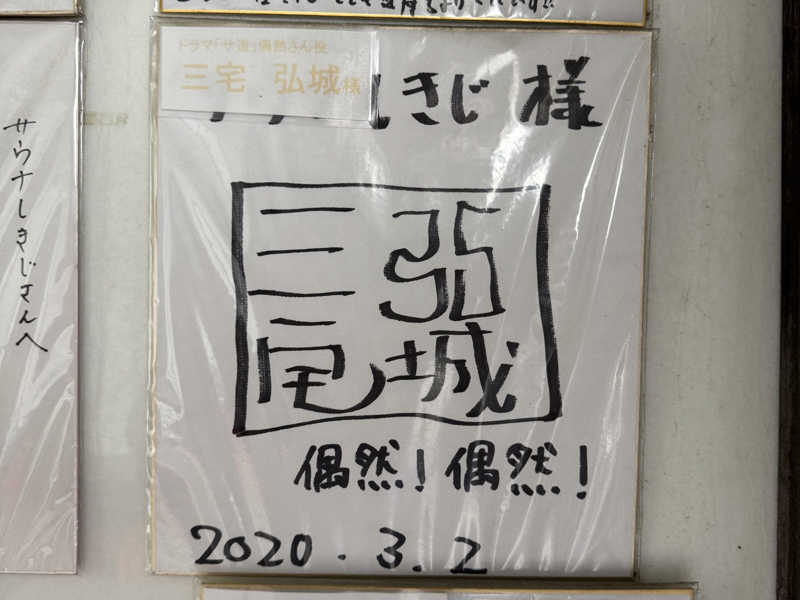 ドラマ「サ道」偶然さん役
三宅 弘城様
きじ 様
三宅
弘城
偶然！偶然！
2020.3.2
サウナしきじさんへ